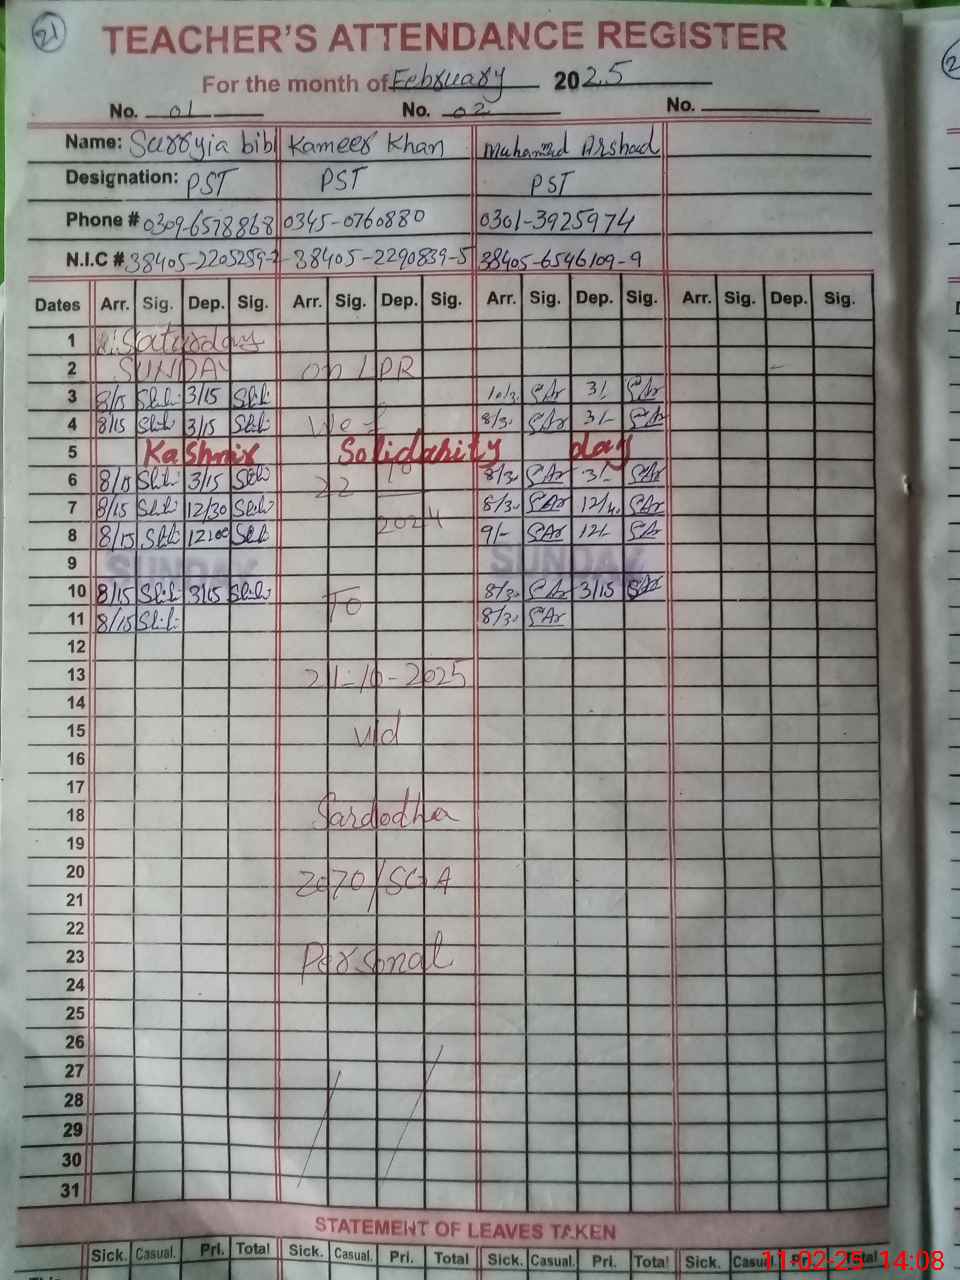 21
TEACHER'S ATTENDANCE REGISTER
For the month of February 2025
No. 01 No. 02 No.
Name: Surryia bibi Kameer Khan Muhammad Arshad
Designation: PST PST PST
Phone # 0309-6578868 0345-0760880 0301-3925974
N.I.C # 38405-2205259-2 38405-2290839-5 38405-6546109-9
Dates Arr. Sig. Dep. Sig. Arr. Sig. Dep. Sig. Arr. Sig. Dep. Sig. Arr. Sig. Dep. Sig.
1 Saturday
2 SUNDAY on LPR
3 8/15 3/15 3/-
4 8/15 3/15 8/3. 3/-
5 Kashmir Solidarity day
6 8/15 3/15 22 8/3. 3/-
7 8/15 12/30 8/3.
8 8/15 12:00 2024 9/- 12/-
9 SUNDAY SUNDAY
10 8/15 3/15 To 8/3. 3/15
11 8/15 8/3.
12
13 21-10-2025
14
15 vid
16
17
18 Sardodha
19
20 2070/SGA
21
22
23 Personal
24
25
26
27
28
29
30
31
STATEMENT OF LEAVES TAKEN
Sick. Casual. Pri. Total Sick. Casual. Pri. Total Sick. Casual. Pri. Total Sick. Casual Pri. Total
11-02-25 14:08